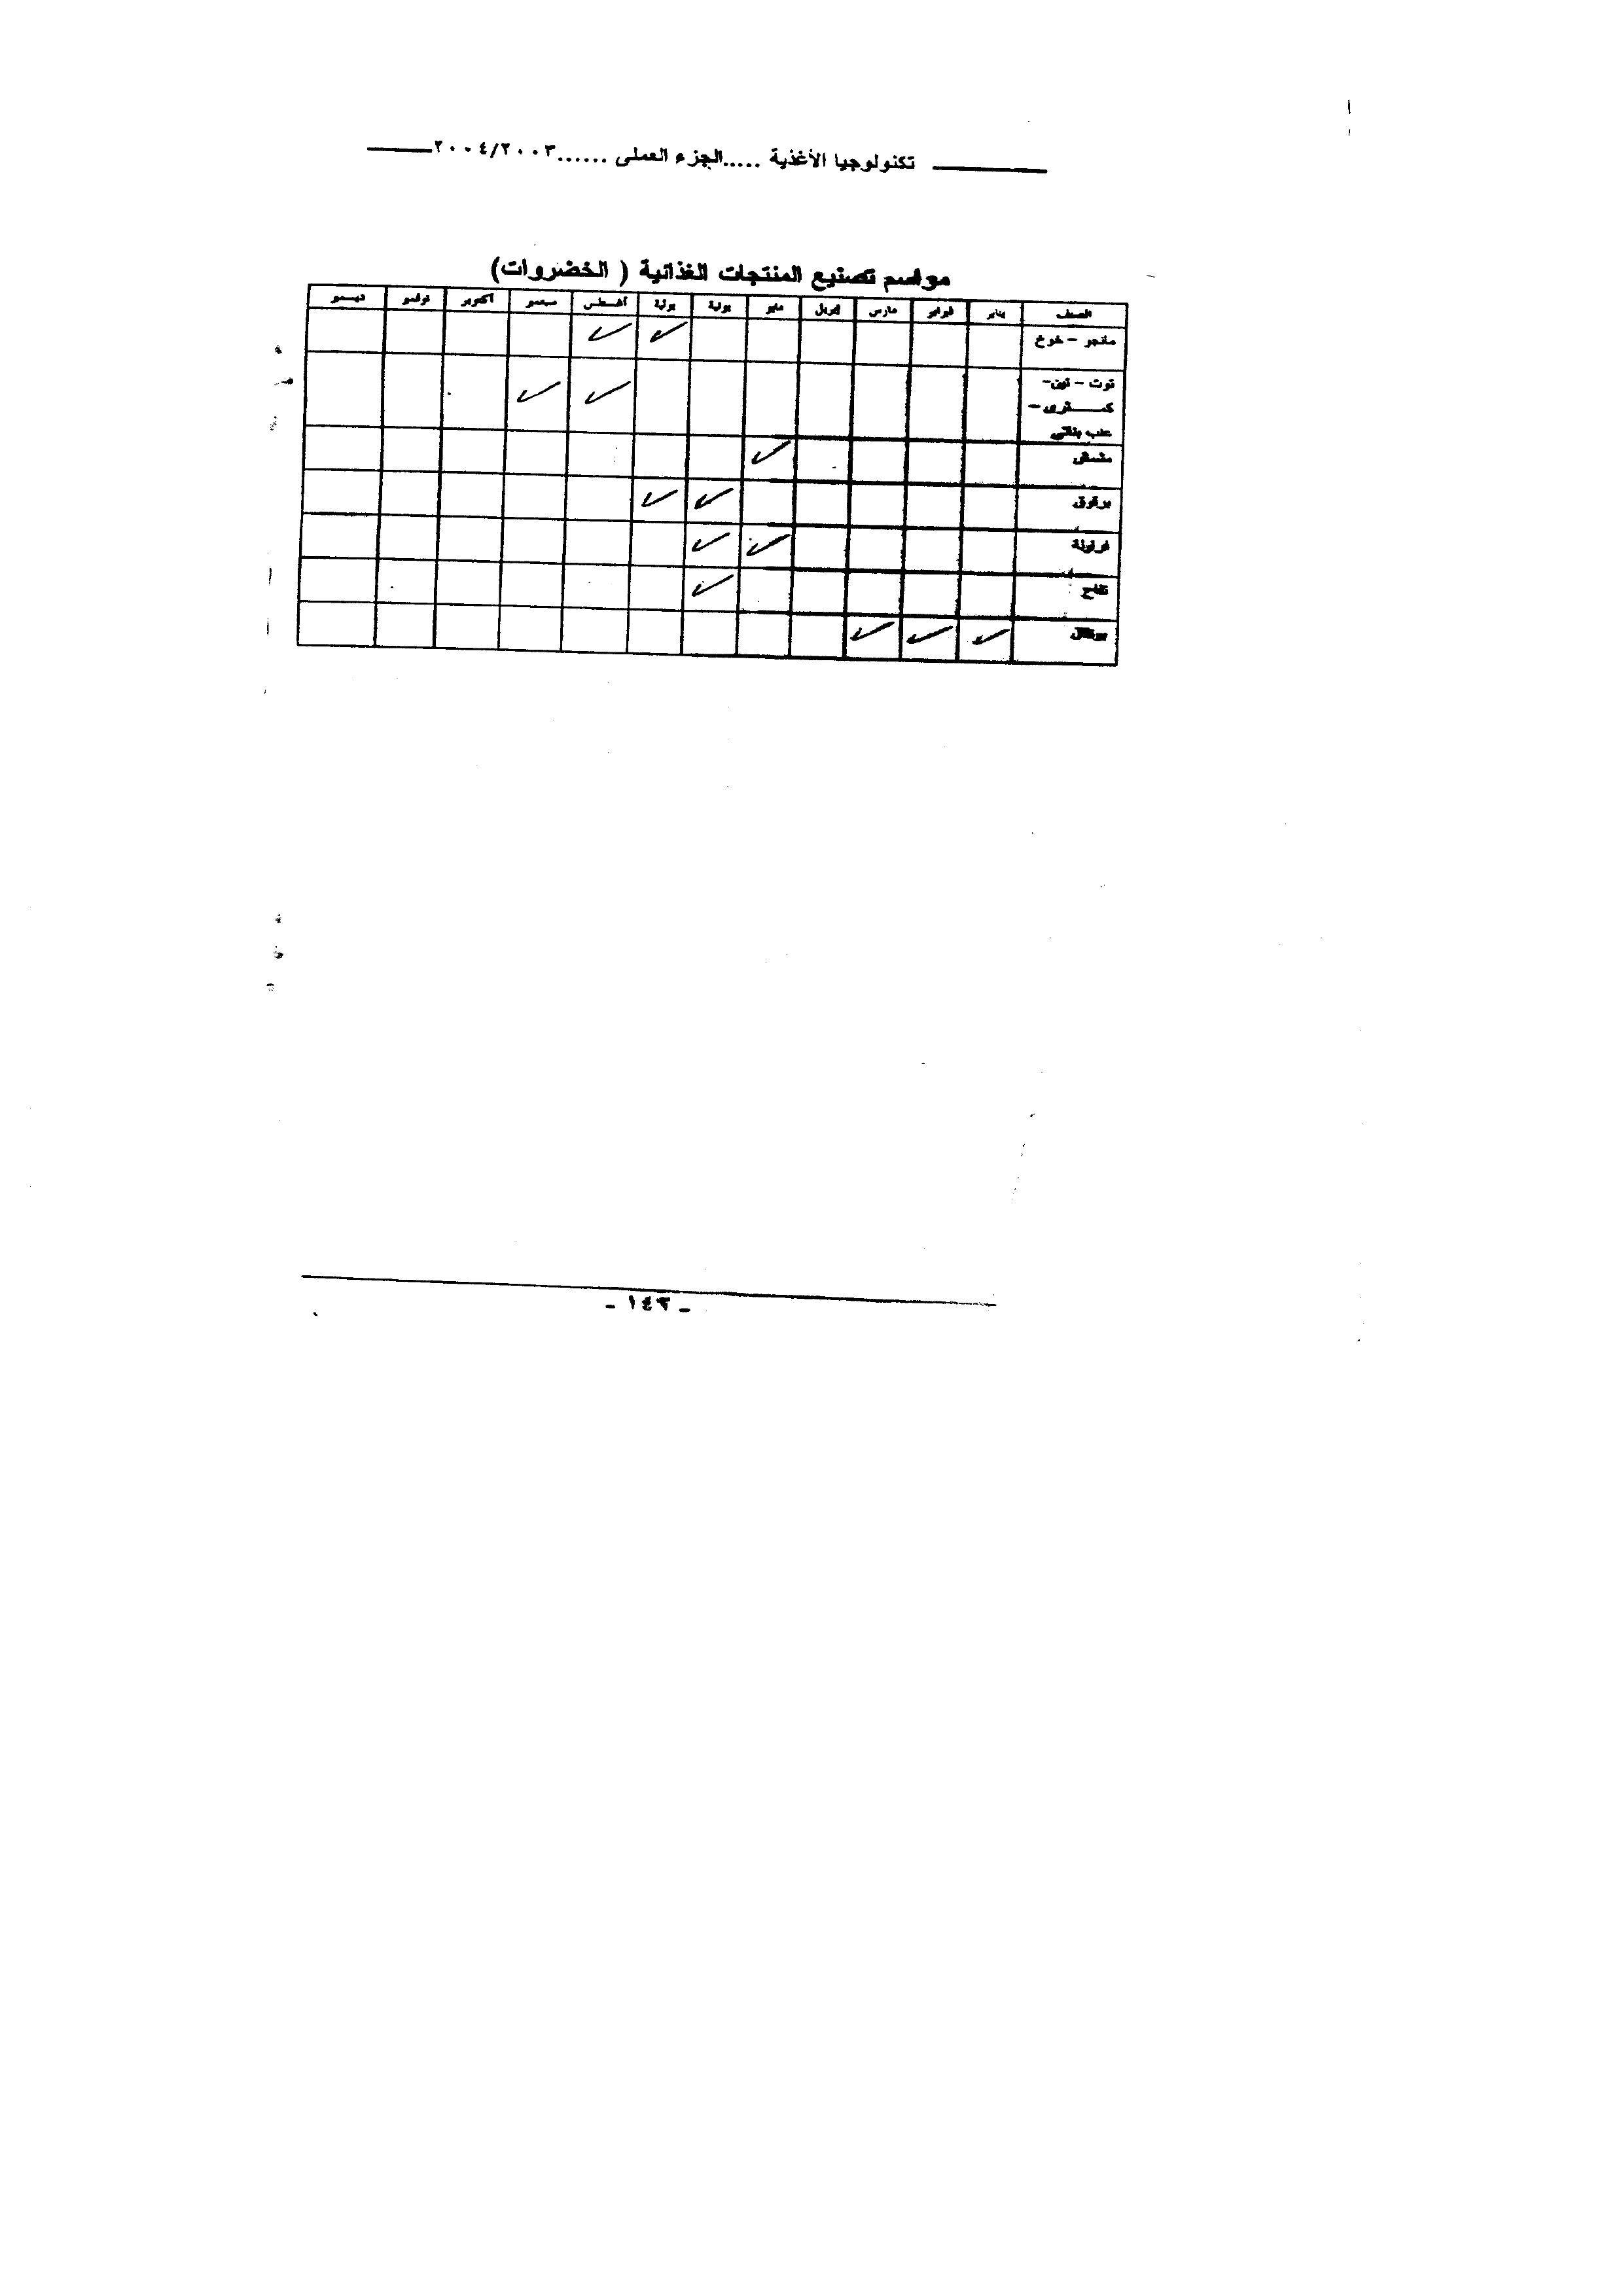 تكنولوجيا الأغذية .....الجزء العملى ......٢٠٠٤/٢٠٠٣
مواسم تصنيع المنتجات الغذائية ( الخضروات)
الصنف يناير فبراير مارس ابريل مايو يونية يولية أغسطس سبتمبر أكتوبر نوفمبر ديسمبر
مانجو – خوخ ✓ ✓
توت – تين–
كمــثرى – ✓ ✓
عنب بناتى
مشمش ✓
برقوق ✓ ✓
فراولة ✓ ✓
تفاح ✓
برتقال ✓ ✓ ✓
- ١٤٣ -